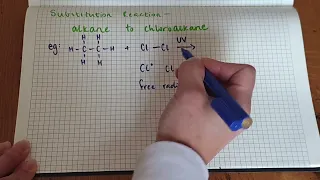 Substitution Reaction
alkane to chloroalkane
H H UV
eg: H-C-C-H + Cl-Cl →
H H
Cl• Cl
free rad